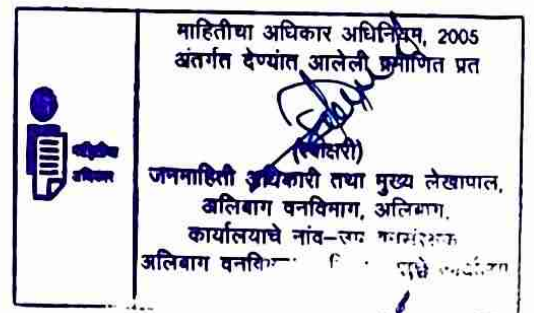 माहितीचा अधिकार अधिनियम, 2005
अंतर्गत देण्यांत आलेली प्रमाणित प्रत
(स्वाक्षरी)
माहितीचा
अधिकार
जनमाहिती अधिकारी तथा मुख्य लेखापाल,
अलिबाग वनविभाग, अलिबाग,
कार्यालयाचे नांव-उप वनसंरक्षक
अलिबाग